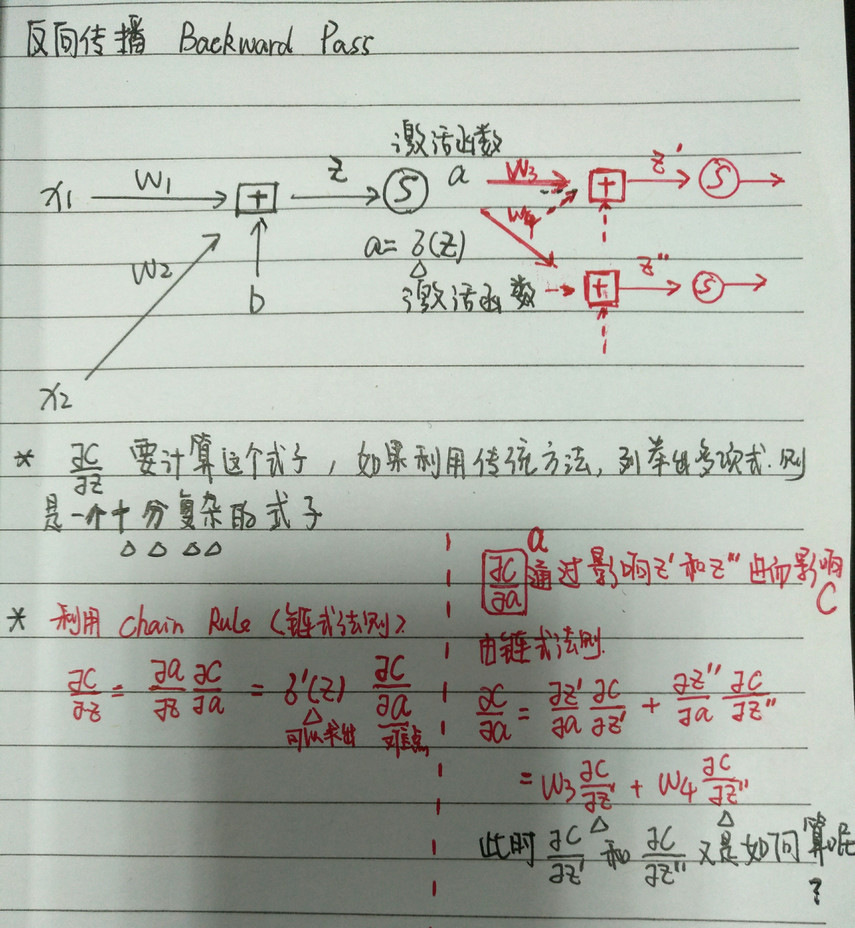 反向传播 Backward Pass
激活函数
x1 W1 + z S a W3 + z' S
W4
W2 a = δ(z) z''
b 激活函数 + S
x2
* ∂C/∂z 要计算这个式子，如果利用传统方法，列举出多项式.则
是一个十分复杂的式子
* 利用 Chain Rule (链式法则).
∂C/∂z = ∂a/∂z ∂C/∂a = δ'(z) ∂C/∂a
可以求出
a
∂C/∂a 通过影响z'和z''进而影响
C
由链式法则.
∂C/∂a = ∂z'/∂a ∂C/∂z' + ∂z''/∂a ∂C/∂z''
= W3 ∂C/∂z' + W4 ∂C/∂z''
此时 ∂C/∂z' 和 ∂C/∂z'' 又是如何算呢
?